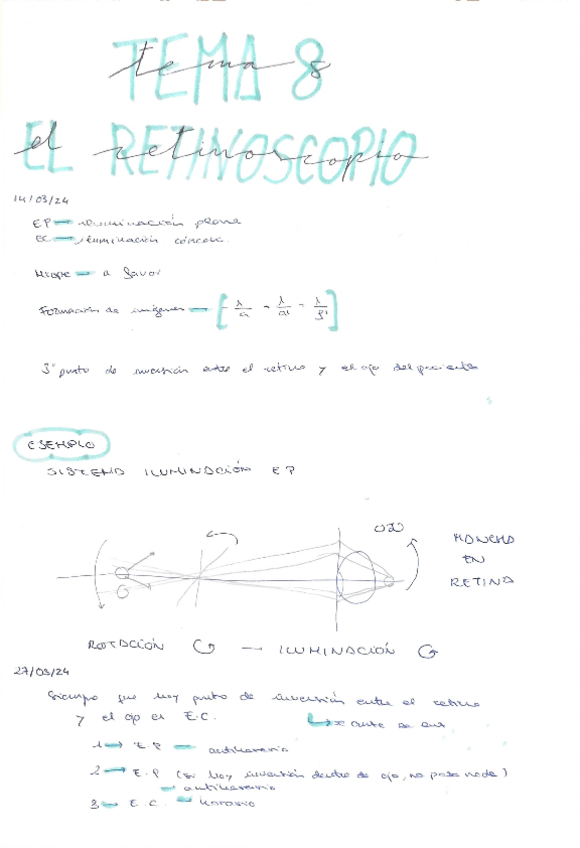 TEMA 8
tema 8
EL RETINOSCOPIO
el retinoscopio
14/03/24
EP → iluminación plana
EC → iluminación cóncava.
Miope → a favor
Formación de imágenes → [- λ/a = λ/a' - λ/f']
3º punto de inversión entre el retino y el ojo del paciente
EJEMPLO
SISTEMA ILUMINACIÓN EP
OJO
MANCHA
EN
RETINA
ROTACIÓN — ILUMINACIÓN
27/03/24
Siempre que hay punto de inversión entre el retino
y el ojo es E.C.
1 → E.P → antihorario
2 → E.P (si hay inversión dentro de ojo, no pasa nada)
→ antihorario
3 → E.C. → horario